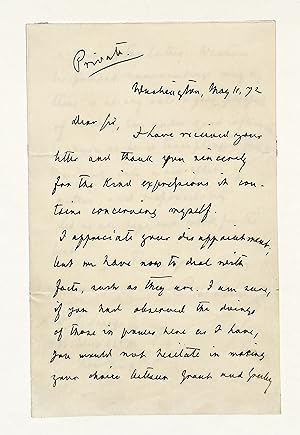 Private.
Washington, May 11, 72
Dear Sir,
I have received your
letter and thank you sincerely
for the kind expressions it con-
tains concerning myself.
I appreciate your disappointment,
but we have now to deal with
facts, such as they are. I am sure,
if you had observed the doings
of those in power here as I have,
you would not hesitate in making
your choice between Grant and Greeley